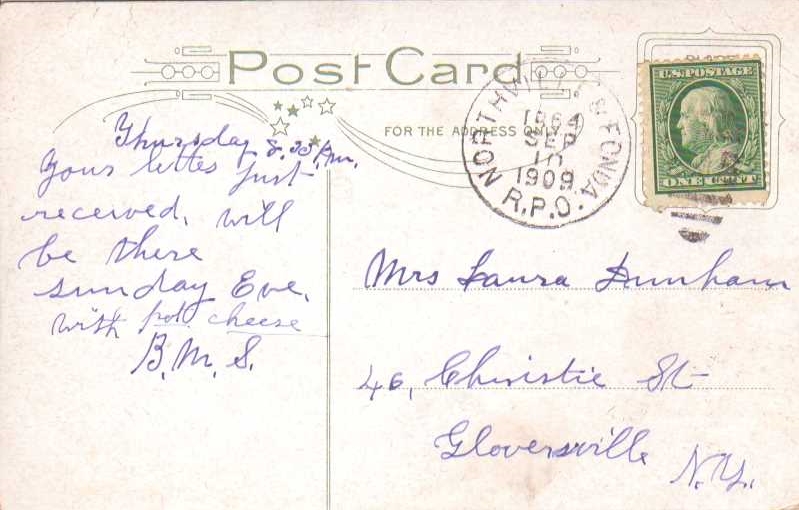 Post Card
FOR THE ADDRESS ONLY
NORTHVILLE & FONDA
1964
SEP
10
1909
R.P.O.
U.S. POSTAGE
ONE CENT
Thursday 8.30 P.m.
Your letter just
received, will
be there
sunday Eve,
with pot cheese
B. M. S.
Mrs Laura Dunham
46, Christie St
Gloversville N.Y.